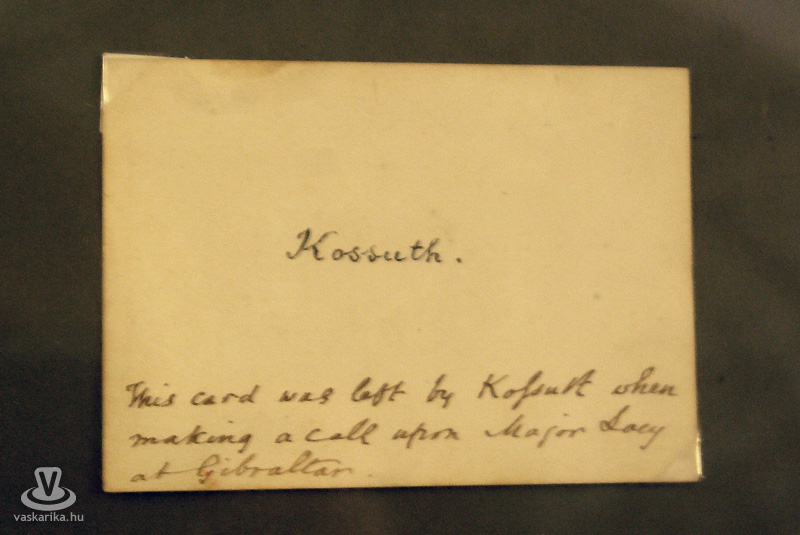 Kossuth.
This card was left by Koſsuth when
making a call upon Major Lacy
at Gibraltar.
vaskarika.hu